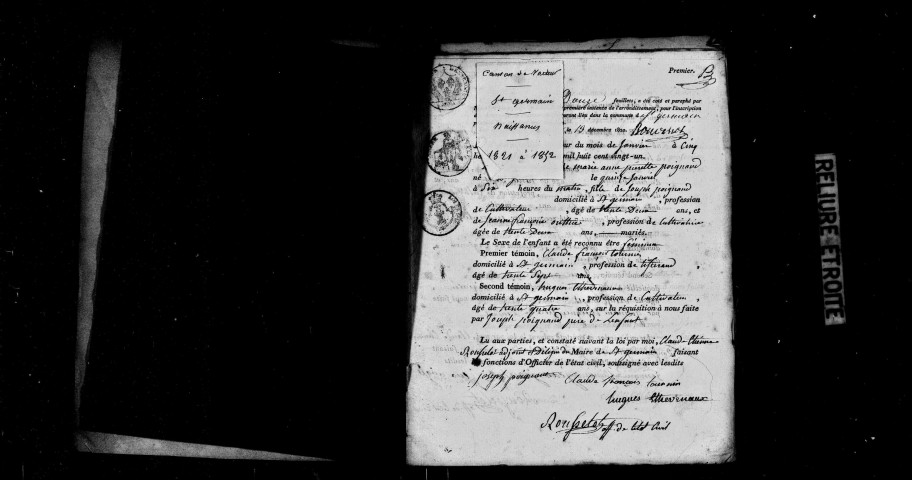 Premier.
Canton de
St germain
Naissances
1821 à 1832
Douze feuillets, a été coté et paraphé par
première instance de l'arrondissement, pour l'inscription
auront lieu dans la commune de St germain
le 13 décembre 1820.
jour du mois de Janvier à Cinq
mil huit cent vingt-un.
marie anne poignand
né le quinze Janvier
à Six heures du matin, fille de Joseph poignand
domicilié à St germain, profession
de Cultivateur, âgé de trente Deux ans, et
de Jeanne françoise, profession de Cultivatrice
âgée de trente Deux ans, mariés.
Le Sexe de l'enfant a été reconnu être féminin
Premier témoin, Claude françois
domicilié à St germain, profession de tisserand
âgé de trente Sept ans,
Second témoin, hugue thevenaux
domicilié à St germain, profession de Cultivateur,
âgé de trente quatre ans, sur la réquisition à nous faite
par Joseph poignand pere de l'enfant
Lu aux parties, et constaté suivant la loi par moi, Claude-Etienne
Rousselot adjoint et délégué du Maire de St germain faisant
fonctions d'Officier de l'état civil, soussigné avec lesdits
joseph poignant Claude françois
hugues thevenaux
Rousselot off. de l'état Civil
RELIURE ETROITE